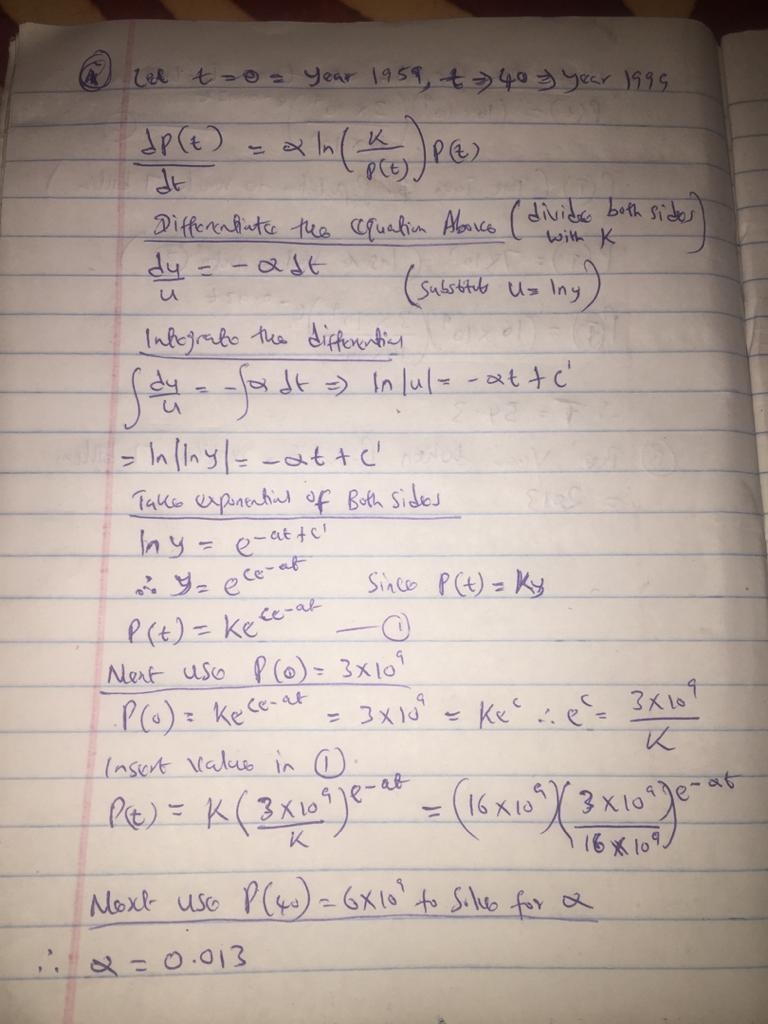 (A) Let t = 0 = Year 1959, t ⇒ 40 ⇒ Year 1999
dP(t)/dt = α ln(K/P(t)) P(t)
Differentiate the equation Above (divide both sides with K)
dy/u = -α dt (Substitute u = ln y)
Integrate the differential
∫ dy/u = -∫α dt ⇒ ln|u| = -αt + C'
= ln|ln y| = -αt + C'
Take exponential of Both sides
ln y = e^(-αt+C')
∴ y = e^(Ce^(-αt)) Since P(t) = Ky
P(t) = Ke^(Ce^(-αt)) — ①
Next use P(0) = 3×10^9
P(0) = Ke^(Ce^(-αt)) = 3×10^9 = Ke^c ∴ e^c = 3×10^9/K
Insert value in ①
P(t) = K(3×10^9/K)^(e^(-αt)) = (16×10^9)(3×10^9/16×10^9)^(e^(-αt))
Next use P(40) = 6×10^9 to Solve for α
∴ α = 0.013